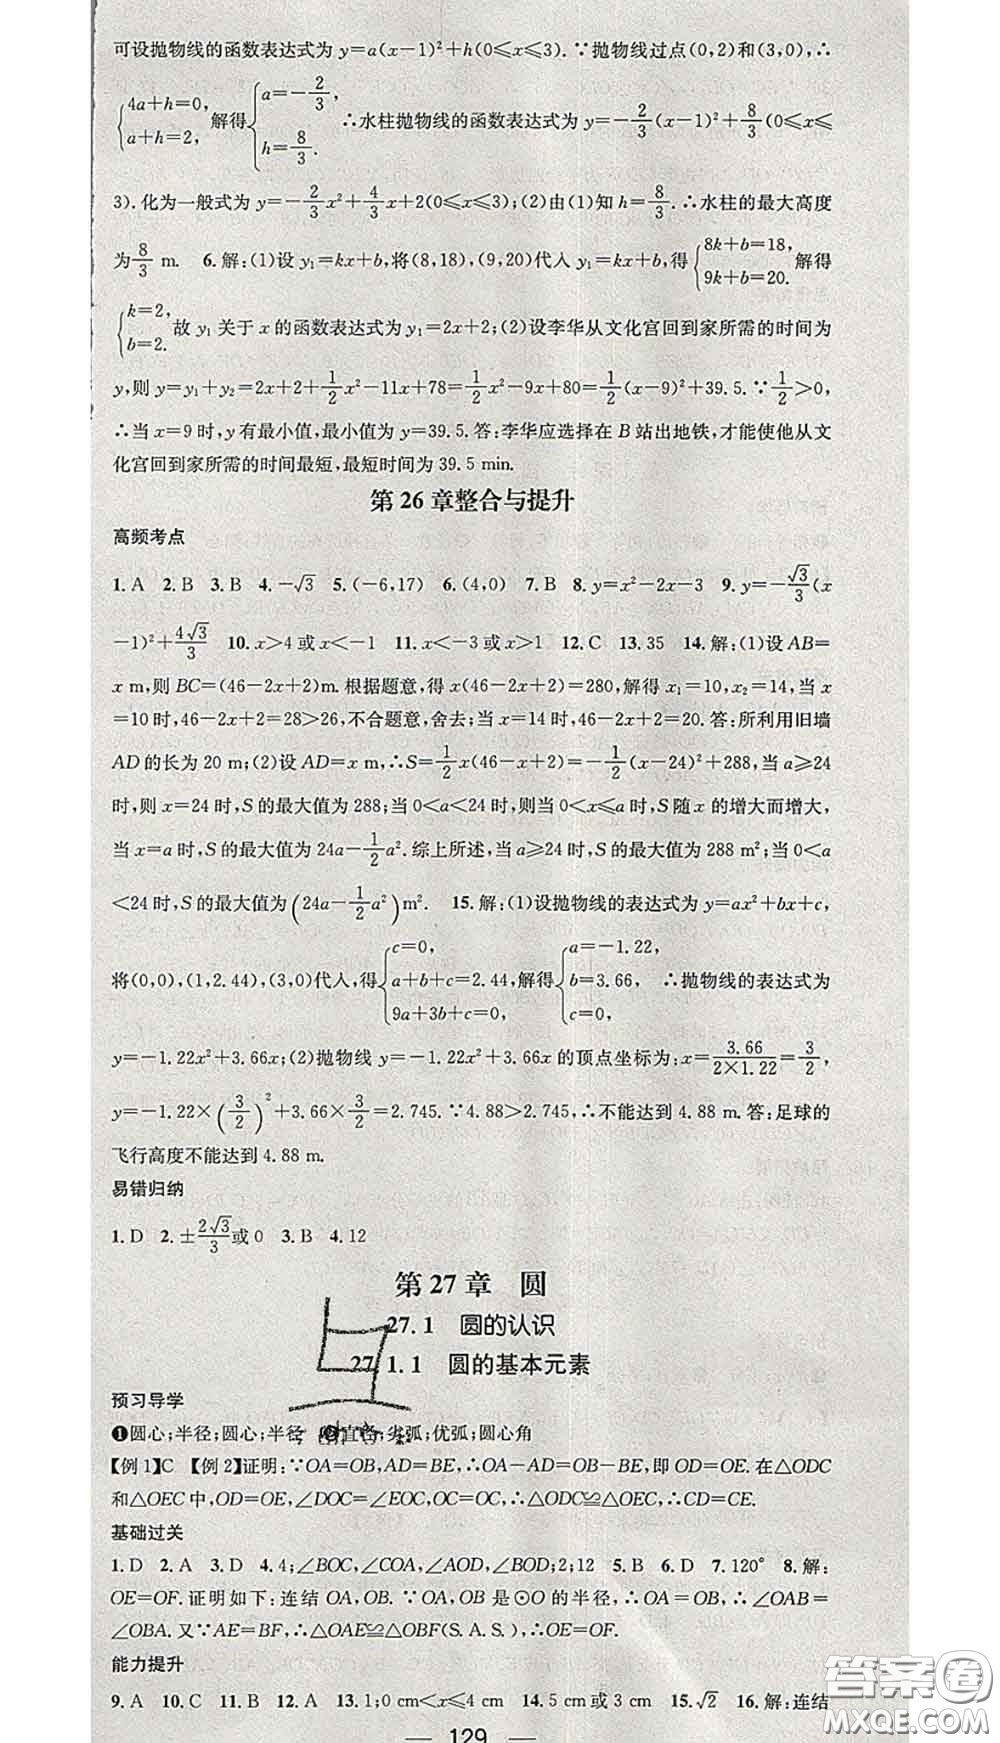 可设抛物线的函数表达式为 y=a(x-1)²+h(0≤x≤3).∵抛物线过点(0,2)和(3,0),∴
{4a+h=0, a+h=2, 解得{a=-2/3, h=8/3. ∴水柱抛物线的函数表达式为 y=-2/3(x-1)²+8/3(0≤x≤
3).化为一般式为 y=-2/3x²+4/3x+2(0≤x≤3);(2)由(1)知 h=8/3.∴水柱的最大高度
为8/3 m. 6.解:(1)设 y₁=kx+b,将(8,18),(9,20)代入 y₁=kx+b,得{8k+b=18, 9k+b=20. 解得
{k=2, b=2. 故 y₁ 关于 x 的函数表达式为 y₁=2x+2;(2)设李华从文化宫回到家所需的时间为
y,则 y=y₁+y₂=2x+2+1/2x²-11x+78=1/2x²-9x+80=1/2(x-9)²+39.5.∵1/2>0,
∴当 x=9 时,y 有最小值,最小值为 y=39.5.答:李华应选择在 B 站出地铁,才能使他从文
化宫回到家所需的时间最短,最短时间为 39.5 min.
第 26 章整合与提升
高频考点
1.A 2.B 3.B 4.-√3 5.(-6,17) 6.(4,0) 7.B 8.y=x²-2x-3 9.y=-√3/3(x
-1)²+4√3/3 10.x>4 或 x<-1 11.x<-3 或 x>1 12.C 13.35 14.解:(1)设 AB=
x m,则 BC=(46-2x+2)m.根据题意,得 x(46-2x+2)=280,解得 x₁=10,x₂=14,当 x
=10 时,46-2x+2=28>26,不合题意,舍去;当 x=14 时,46-2x+2=20.答:所利用旧墙
AD 的长为 20 m;(2)设 AD=x m,∴S=1/2x(46-x+2)=-1/2(x-24)²+288,当 a≥24
时,则 x=24 时,S 的最大值为 288;当 0<a<24 时,则当 0<x≤a 时,S 随 x 的增大而增大,
当 x=a 时,S 的最大值为 24a-1/2a².综上所述,当 a≥24 时,S 的最大值为 288 m²;当 0<a
<24 时,S 的最大值为(24a-1/2a²)m². 15.解:(1)设抛物线的表达式为 y=ax²+bx+c,
将(0,0),(1,2.44),(3,0)代入,得{c=0, a+b+c=2.44, 9a+3b+c=0, 解得{a=-1.22, b=3.66, c=0, ∴抛物线的表达式为
y=-1.22x²+3.66x;(2)抛物线 y=-1.22x²+3.66x 的顶点坐标为:x=3.66/(2×1.22)=3/2,
y=-1.22×(3/2)²+3.66×3/2=2.745.∵4.88>2.745,∴不能达到 4.88 m.答:足球的
飞行高度不能达到 4.88 m.
易错归纳
1.D 2.±2√3/3或 0 3.B 4.12
第 27 章 圆
27.1 圆的认识
27.1.1 圆的基本元素
预习导学
❶圆心;半径;圆心;半径 ❷直径;劣弧;优弧;圆心角
【例 1】C 【例 2】证明:∵OA=OB,AD=BE,∴OA-AD=OB-BE,即 OD=OE.在△ODC
和△OEC 中,OD=OE,∠DOC=∠EOC,OC=OC,∴△ODC≌△OEC,∴CD=CE.
基础过关
1.D 2.A 3.D 4.4;∠BOC,∠COA,∠AOD,∠BOD;2;12 5.B 6.D 7.120° 8.解:
OE=OF.证明如下:连结 OA,OB.∵OA,OB 是⊙O 的半径,∴OA=OB,∴∠OAB=
∠OBA.又∵AE=BF,∴△OAE≌△OBF(S.A.S.),∴OE=OF.
能力提升
9.A 10.C 11.B 12.A 13.1;0 cm<x≤4 cm 14.5 cm 或 3 cm 15.√2 16.解:连结
— 129 —
答案圈
MXQE.COM